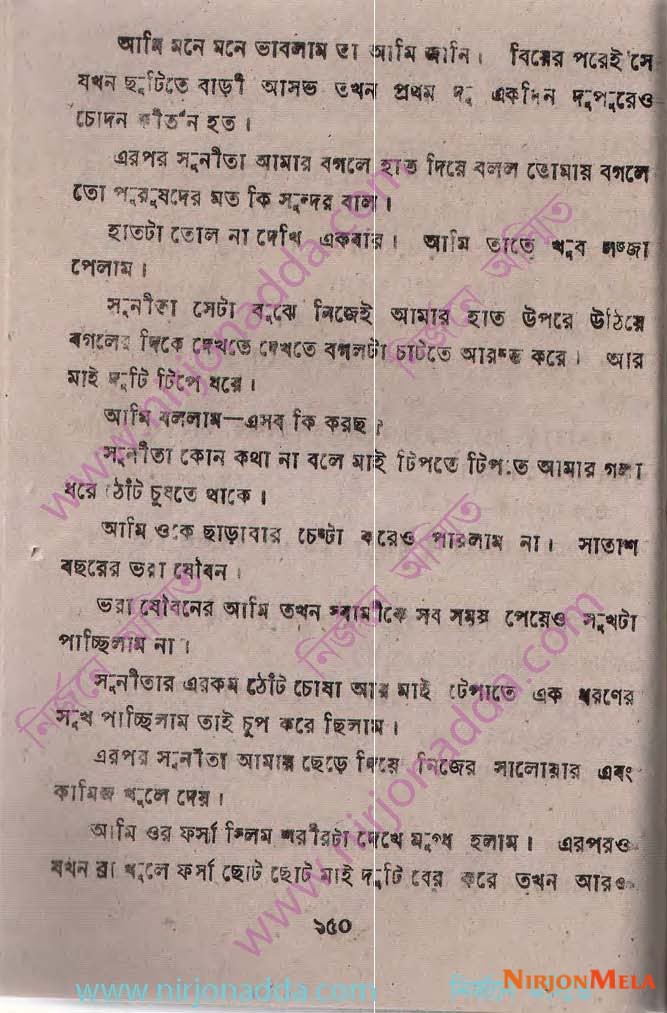 আমি মনে মনে ভাবলাম তা আমি জানি। বিয়ের পরেই সে
যখন ছুটিতে বাড়ী আসত তখন প্রথম দু একদিন দুপুরেও
চোদন কীর্তন হত।
এরপর সুনীতা আমার বগলে হাত দিয়ে বলল তোমায় বগলে
তো পুরুষদের মত কি সুন্দর বাল।
হাতটা তোল না দেখি একবার। আমি তাতে খুব লজ্জা
পেলাম।
সুনীতা সেটা বুঝে নিজেই আমার হাত উপরে উঠিয়ে
বগলের দিকে দেখতে দেখতে বগলটা চাটতে আরম্ভ করে। আর
মাই দুটি টিপে ধরে।
আমি বললাম—এসব কি করছ?
সুনীতা কোন কথা না বলে মাই টিপতে টিপতে আমার গলা
ধরে ঠোঁট চুষতে থাকে।
আমি ওকে ছাড়াবার চেষ্টা করেও পারলাম না। সাতাশ
বছরের ভরা যৌবন।
ভরা যৌবনের আমি তখন স্বামীকে সব সময় পেয়েও সুখটা
পাচ্ছিলাম না।
সুনীতার এরকম ঠোঁট চোষা আর মাই টেপাতে এক ধরণের
সুখ পাচ্ছিলাম তাই চুপ করে ছিলাম।
এরপর সুনীতা আমায় ছেড়ে দিয়ে নিজের সালোয়ার এবং
কামিজ খুলে দেয়।
আমি ওর ফর্সা স্লিম শরীরটা দেখে মুগ্ধ হলাম। এরপরও
যখন ব্রা খুলে ফর্সা ছোট ছোট মাই দুটি বের করে তখন আরও
১৫০
www.nirjonadda.com
নির্জনে অন্মিত
www.nirjonadda.com
নির্জনে
NIRJONMELA